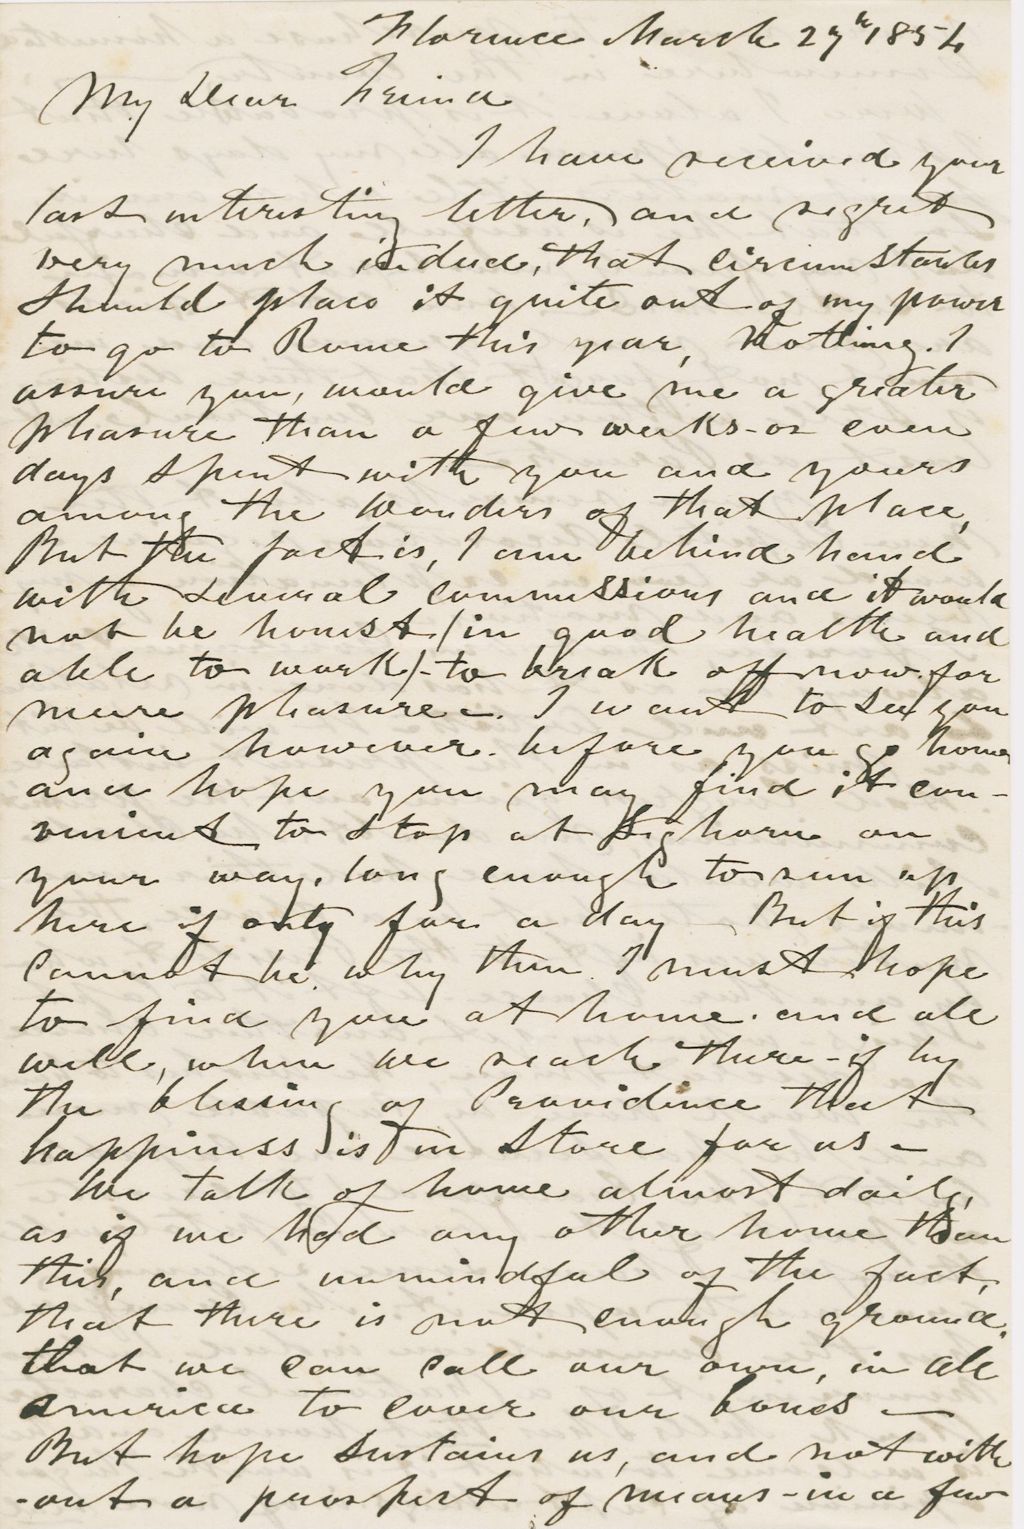 Florence March 27th 1854
My Dear Friend
I have received your
last interesting letter, and regret
very much indeed, that circumstances
should place it quite out of my power
to go to Rome this year, Nothing. I
assure you, would give me a greater
pleasure than a few weeks - or even
days spent with you and yours
among the wonders of that place,
But the fact is, I am behind hand
with several commissions and it would
not be honest (in good health and
able to work) - to break off now for
mere pleasure -. I want to see you
again however. before you go home
and hope you may find it con-
venient to stop at Leghorn on
your way, long enough to run up
here if only for a day - But if this
cannot be, why then I must hope
to find you at home. and all
well, when we reach there - if by
the blessing of Providence that
happiness is in store for us -
We talk of home almost daily,
as if we had any other home than
this, and unmindful of the fact,
that there is not enough ground.
that we can call our own, in all
America to cover our bones -
But hope sustains us, and not with
-out a prospect of means - in a few